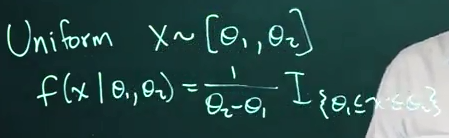 Uniform x~[θ₁,θ₂]
f(x|θ₁,θ₂) = 1/(θ₂-θ₁) I_{θ₁≤x≤θ₂}